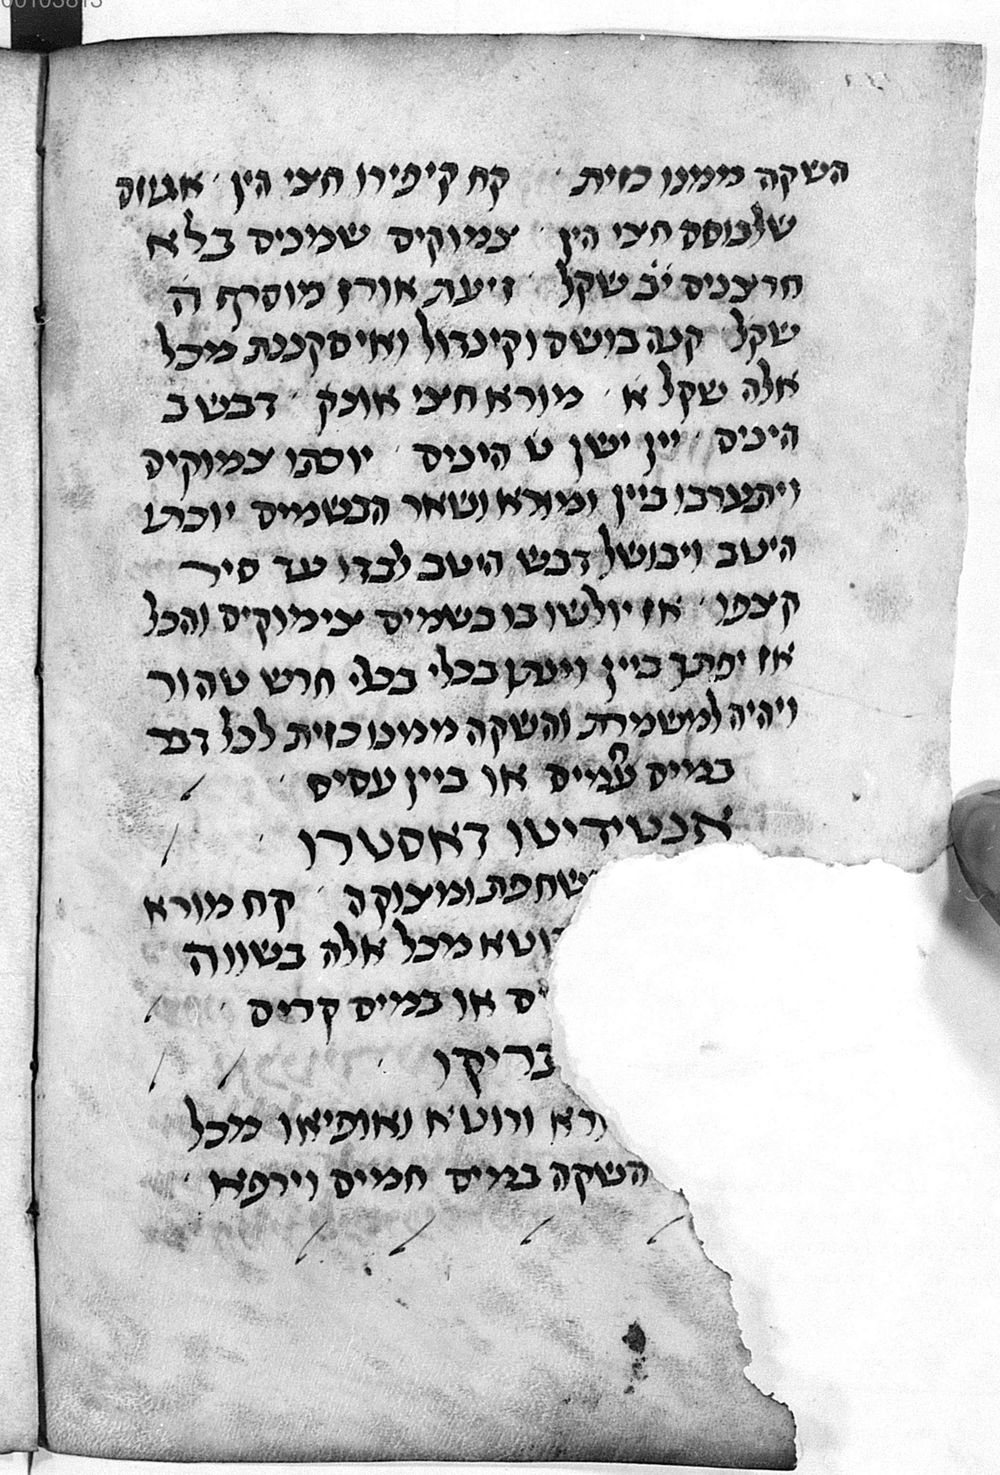 השקה ממנו כזית קח קיפירו חצי הין אגוזס
של כוסס חצי הין צמוקים שמנים בלא
חרצנים י'ב שקל זיעת אורז מוסרף ה'
שקל קנה בושם וקינמול ואיסקננת מכל
אלה שקל א' מורא חצי אונק' דבש ב
הינים יין ישן ט הינים יוסרו צמוקים
ויתערבו ביין ומורא ושאר הבשמים יוכתו
היטב ויבושל דבש היטב לבדו עד סיר
קצפו אז יולשו בו בשמים צימוקים והכל
אז יפתך ביין וינתן בכלי בכלי חרש טהור
ויהיה למשמרת והשקה ממנו כזית לכל דבר
במים חמים או ביין עסיס
אנטידיטו דאסטרו
שחפת ומצוקה קח מורא
רוטא מכל אלה בשווה
ים או במים קרים
בריקו
ורא ורוטא ואופיאו מכל
השקה במים חמים וירפא